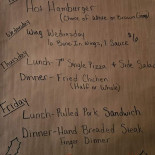 Hot Hamburger
(Choice of White or Brown Gravy)
Wednesday
Wing Wednesday
10 Bone In Wings, 1 Sauce $6
Thursday
Lunch- 7" Single Pizza & Side Salad
Dinner- Fried Chicken
(Half or Whole)
Friday
Lunch- Pulled Pork Sandwich
Dinner- Hand Breaded Steak
Finger Dinner